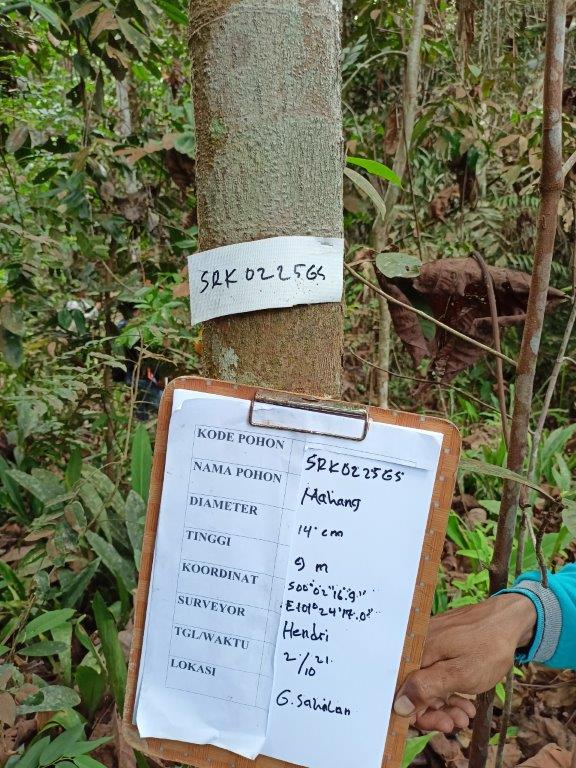 SRK0225GS
KODE POHON SRK0225GS
NAMA POHON Mahang
DIAMETER 14 cm
TINGGI 9 m
KOORDINAT S00°02'16.9"
E101°24'17.0"
SURVEYOR Hendri
TGL/WAKTU 2/10 21
LOKASI G. Sahilan